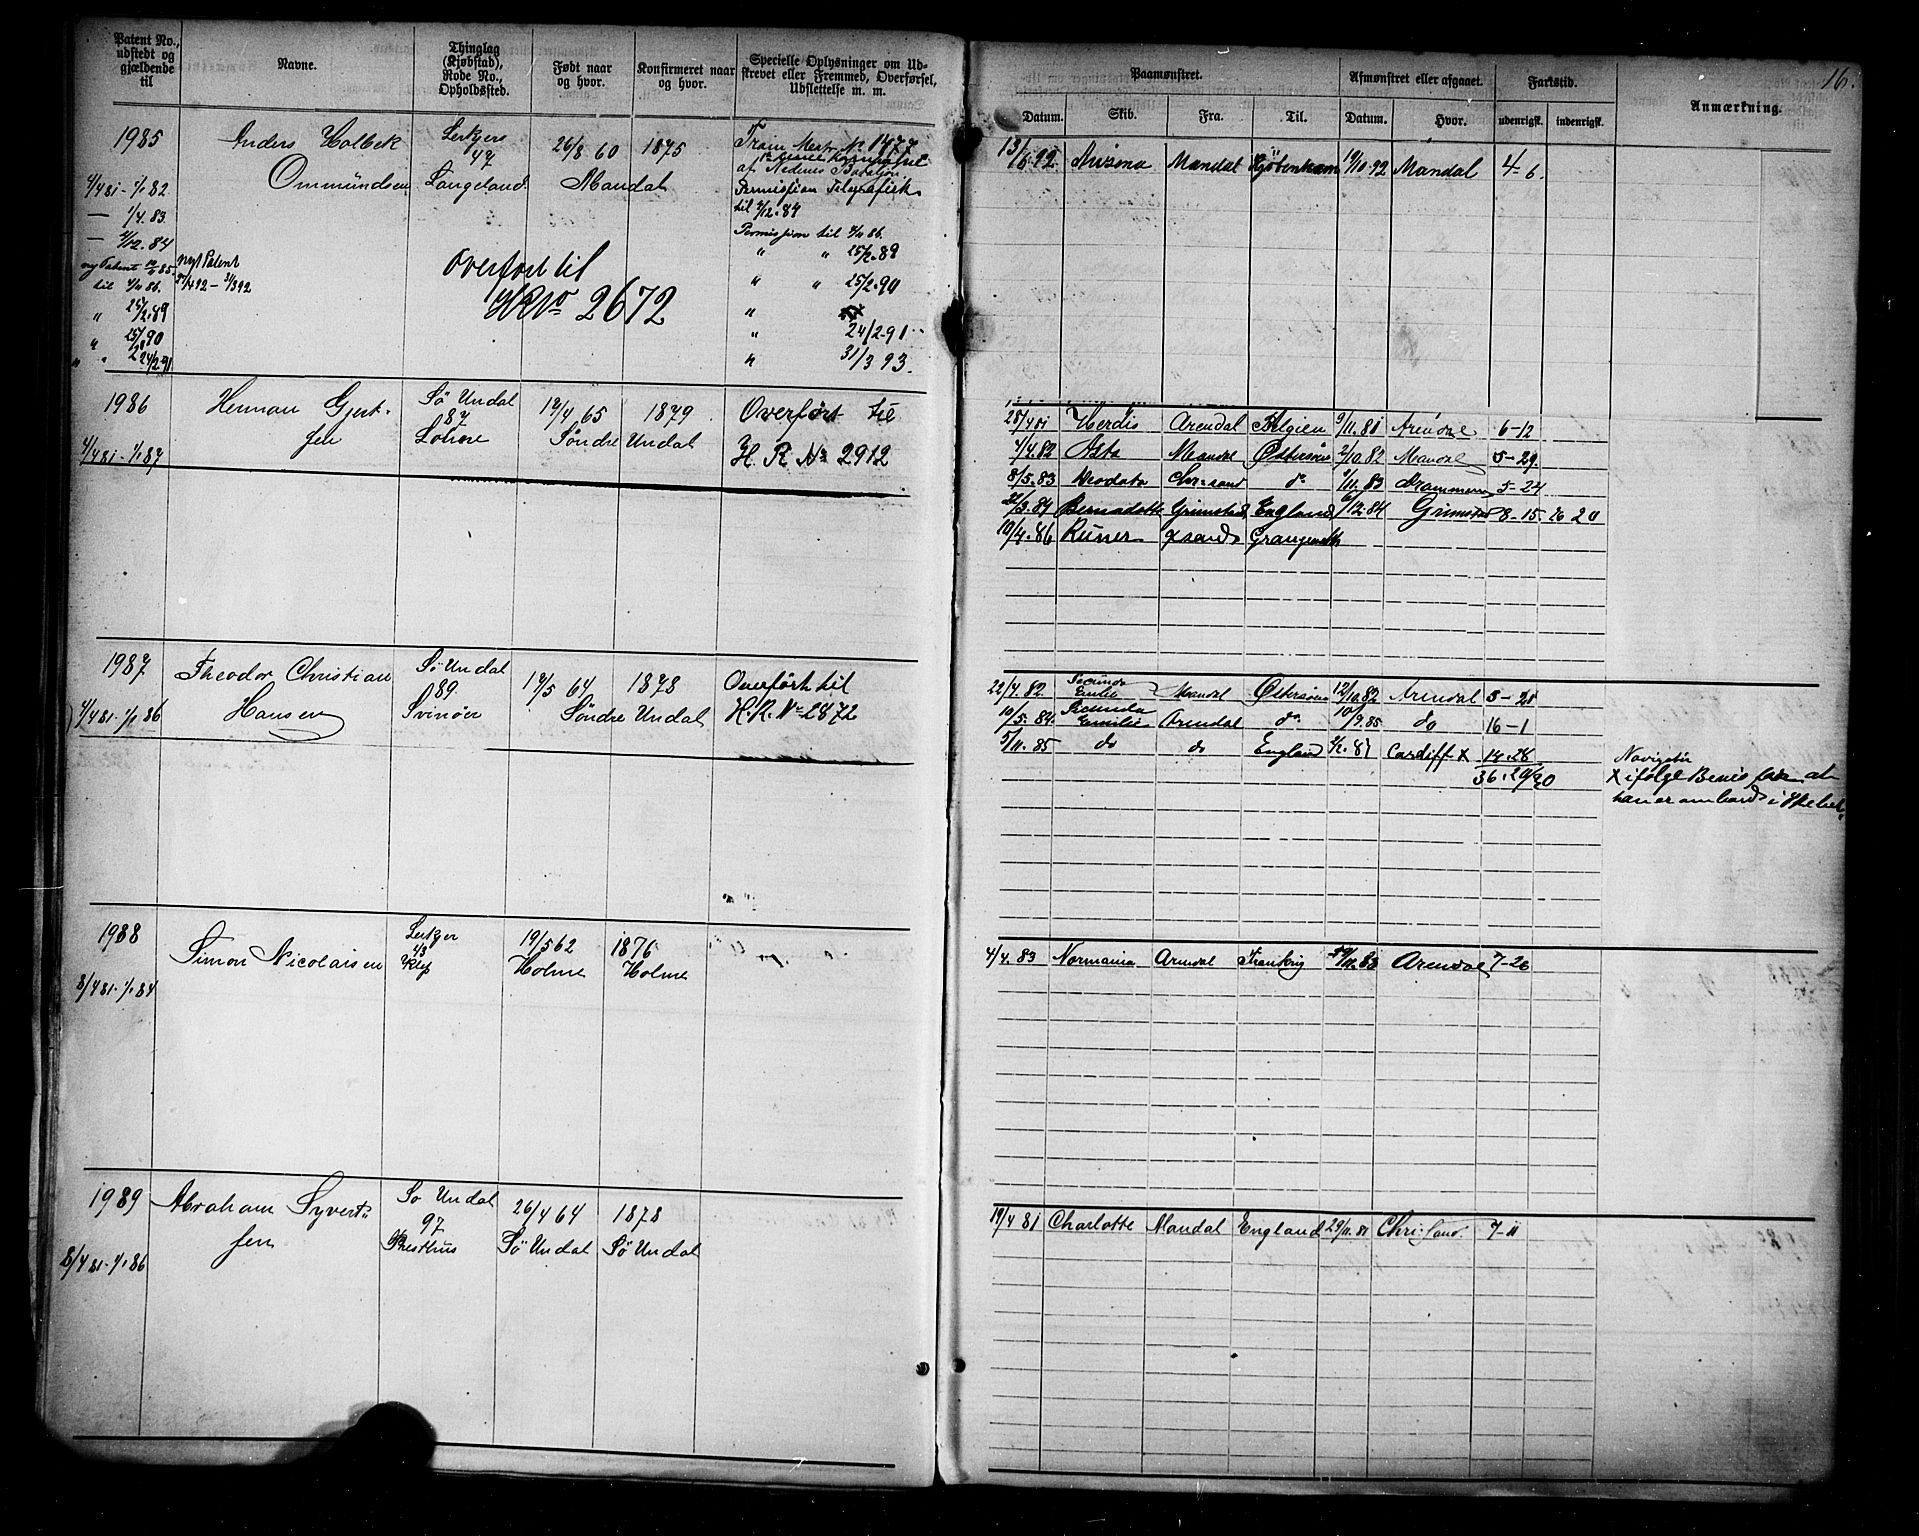 Patent No., udstedt og gjældende til
Navne.
Thinglag (Kjøbstad), Rode No., Opholdssted.
Født naar og hvor.
Konfirmeret naar og hvor.
Specielle Oplysninger om Udskrevet eller Fremmed, Overførsel, Udslettelse m. m.
Paamønstret.
Datum. Skib. Fra. Til.
Afmønstret eller afgaaet.
Datum. Hvor.
Fartstid.
udenrigsk. indenrigsk.
Anmærkning.
16.
1985
4/4 81 - 1/1 82
— 1/4. 83.
— 2/12. 84
til 4/11 86.
" 25/2. 89
" 25/2 90
" 24/2-91
nyt Patent
Anders Holbek
Ommundsen
47
Langeland
26/8 60
1875
Mandal
No 1477
af Nedenes Bataljon.
Permission Telegrafisk
til 2/12. 84
Permission til 4/11 86.
" " 25/2. 89
" " 25/2. 90
" 24/2-91
" 31/3 93.
Overført til
HR No 2672
13/6. 92 Mandal Kjøbenhavn 19/10 92 Mandal 4-6.
1986
4/4 81 - 1/1 87
Herman Gjert-
sen
Sö Undal
87
17/4 65
1879
Søndre Undal
Overført til
H. R. No 2912
25/4 81 Herdis Arendal Belgien 9/11. 81 Arendal 6-12
4/4. 82 Asta Mandal Østersøen 2/10. 82 Mandal 5-29
8/5. 83 Deodata Chr.sand do 1/11. 83 Drammen 5-24
Bernadotte Grimstad England 6/12. 84 Grimstad 8-15. 26 20
10/4. 86 Runer Xsand Grangemth
1987
4/4 81 - 1/1 86
Theodor Christian
Hansen
Sö Undal
89.
Svinøer
17/5 64
1878
Søndre Undal
Overført til
H. R. No 2872
22/4. 82 Secunda Mandal Østersøen 12/10. 82 Arendal
10/5. 84 Secunda Emilie Arendal do. 10/9. 85 do 16-1
5/11. 85 do do England 2/2. 87 Cardiff X 14-28
X ifølge Bevis for at
han er ombord i
1988
8/4 81 - 1/1 84
Simon Nicolaisen
43
Klep
19/5 62
Holme
1876
Holme
4/4. 83 Normania Arendal Frankrig Arendal 7-26
1989
8/4 81 - 1/1 86
Abraham Syvert-
sen
Sö Undal
97
Presthus
26/4 64
Sö Undal
1878
Sö Undal
19/4 81 Charlotte Mandal England 29/11. 81 Chr.sand. 7-11